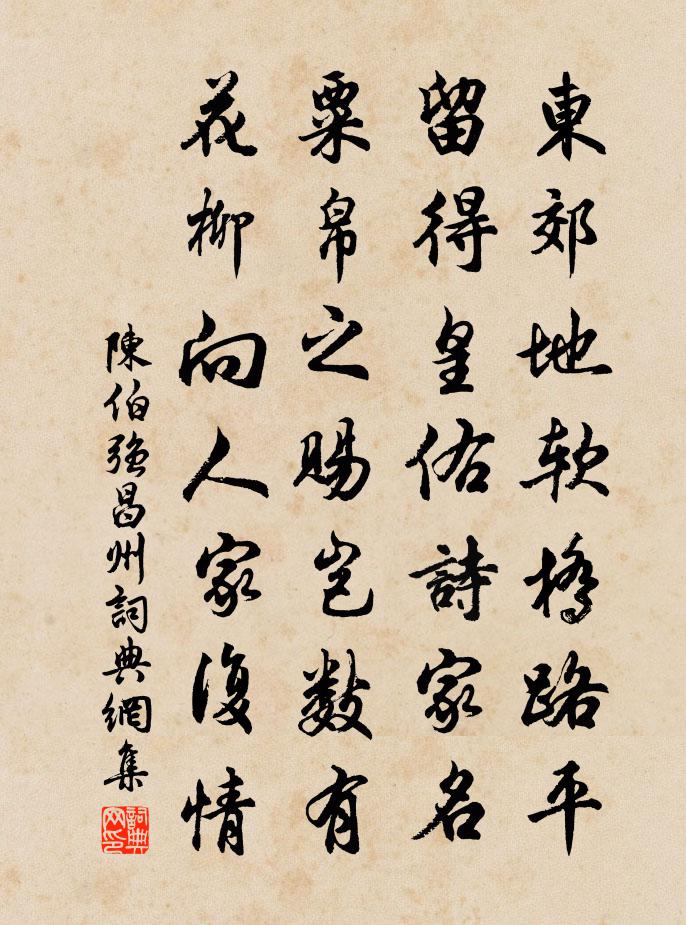 東郊地軟橋路平
留得皇佑詩家名
粟帛之賜豈數有
花柳向人家復情
陳伯強昌州詞典網集
詞典網印